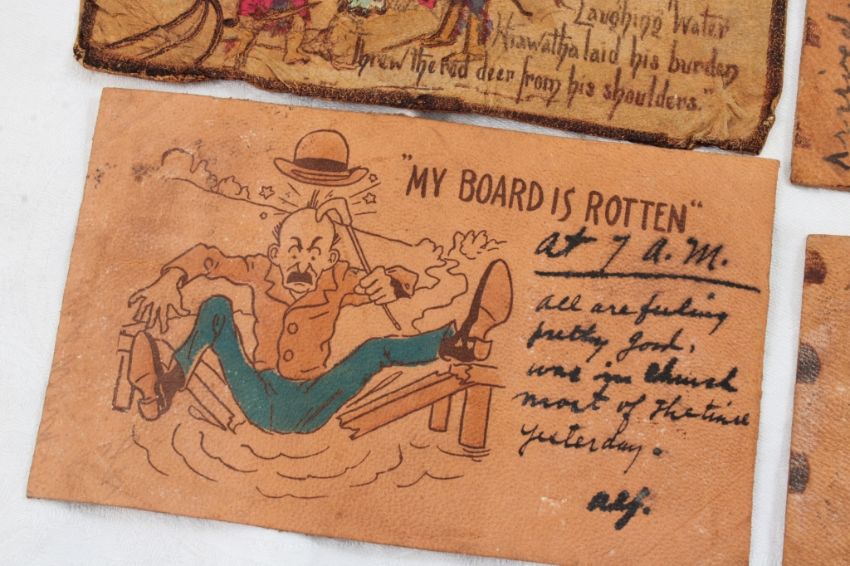 Laughing Water
Hiawatha laid his burden
Threw the red deer from his shoulders."
"MY BOARD IS ROTTEN"
at 7 A.M.
all are feeling
pretty good,
was in church
most of the time
yesterday.
Arrived